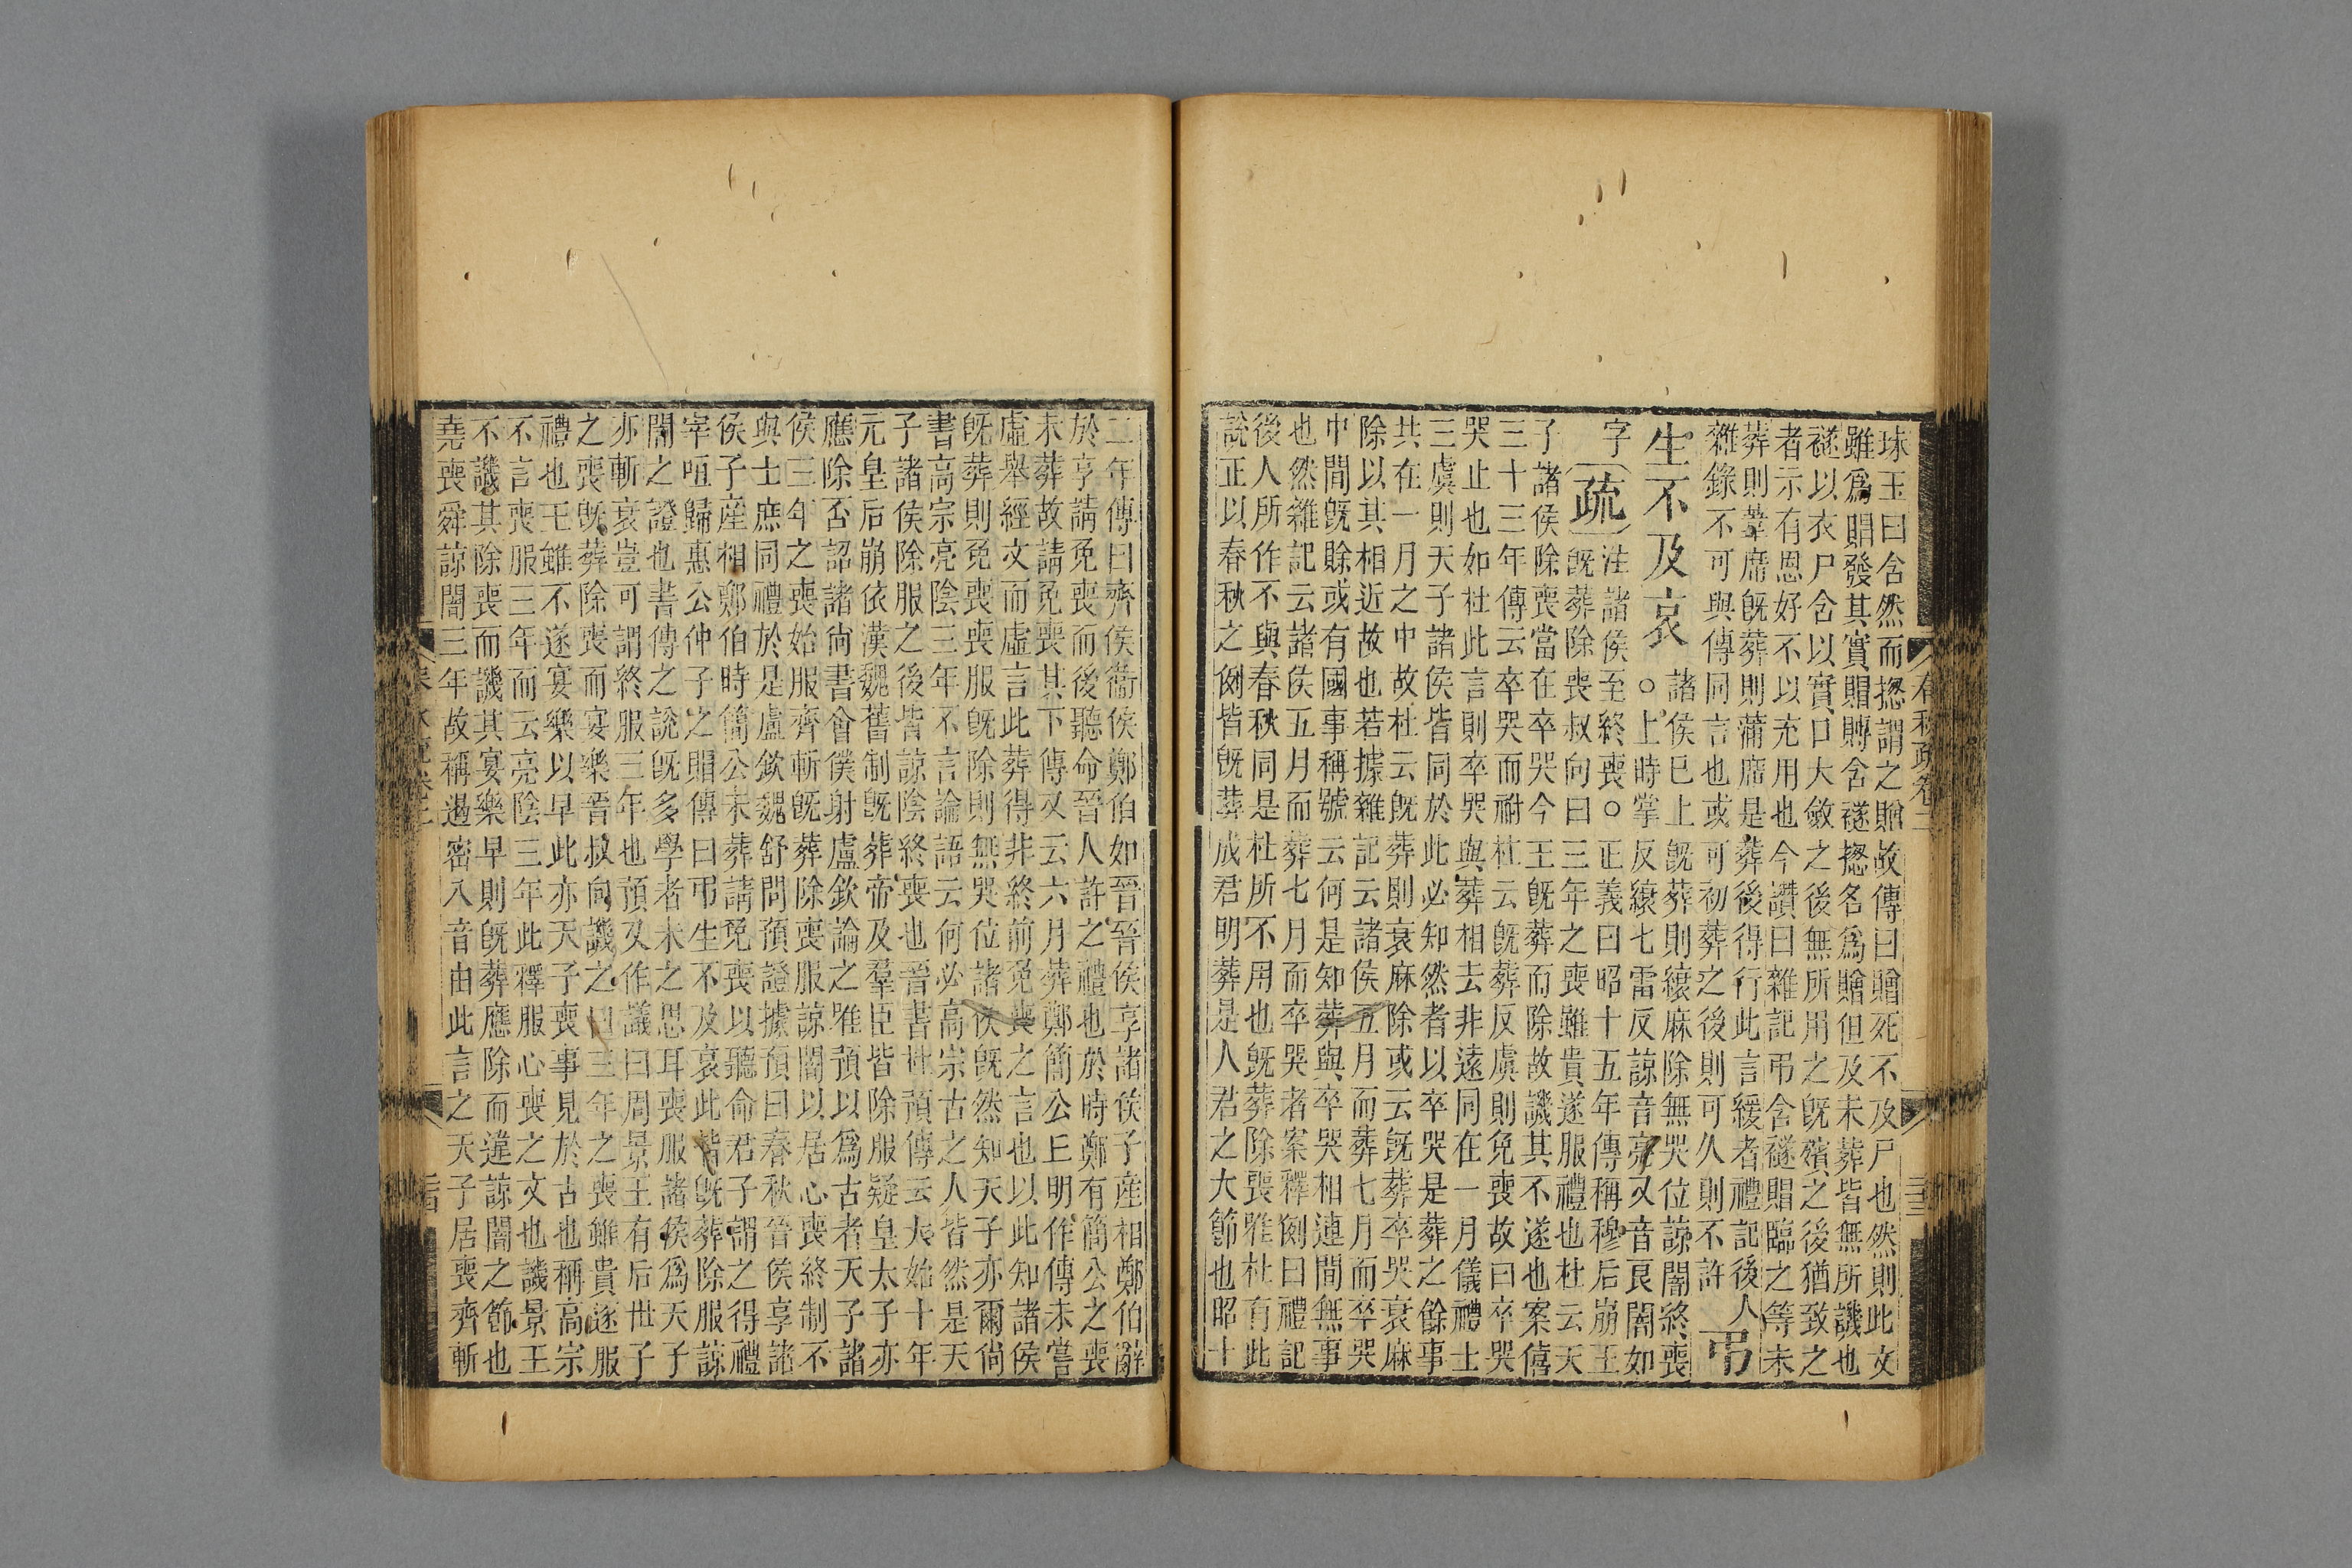 珠玉曰含然而揔謂之贈故傳曰贈死不及尸也然則此文
雖爲賵發其實賵賻含襚揔名爲贈但及未葬皆無所譏也
襚以衣尸含以實口大斂之後無所用之旣殯之後猶致之
者示有恩好不以充用也今讚曰雜記弔含襚賵臨之等未
葬則葦席旣葬則蒲席是葬後得行此言緩者禮記後人
雜錄不可與傳同言也或可初葬之後則可久則不許
弔
生不及哀
諸侯巳上旣葬則縗麻除無哭位諒闇終喪
○上時掌反縗七雷反諒音亮又音良闇如
字
疏
注諸侯至終喪○正義曰昭十五年傳稱穆后崩王
旣葬除喪叔向曰三年之喪雖貴遂服禮也杜云天
子諸侯除喪當在卒哭今王旣葬而除故譏其不遂也案僖
三十三年傳云卒哭而祔杜云旣葬反虞則免喪故曰卒哭
哭止也如杜此言則卒哭與葬相去非遠同在一月儀禮士
三虞則天子諸侯皆同於此必知然者以卒哭是葬之餘事
共在一月之中故杜云旣葬則衰麻除或云旣葬卒哭衰麻
除以其相近故也若據雜記云諸侯五月而葬七月而卒哭
中間旣賖或有國事稱號云何是知葬與卒哭相連間無事
也然雜記云諸侯五月而葬七月而卒哭者案釋例曰禮記
後人所作不與春秋同是杜所不用也旣葬除喪唯杜有此
說正以春秋之例皆旣葬成君明葬是人君之大節也昭十
二年傳曰齊侯衞侯鄭伯如晉晉侯享諸侯子產相鄭伯辭
於享請免喪而後聽命晉人許之禮也於時鄭有簡公之喪
未葬故請免喪其下傳又云六月葬鄭簡公丘明作傳未嘗
虛舉經文而虛言此葬得非終前免喪之言也以此知諸侯
旣葬則免喪喪服旣除則無哭位諸侯旣然知天子亦爾尙
書高宗亮陰三年不言論語云何必高宗古之人皆然是天
子諸侯除服之後皆諒陰終喪也晉書杜預傳云大始十年
元皇后崩依漢魏舊制旣葬帝及羣臣皆除服疑皇太子亦
應除否詔諸尙書會僕射盧欽論之唯預以爲古者天子諸
侯三年之喪始服齊斬旣葬除喪服諒闇以居心喪終制不
與士庶同禮於是盧欽魏舒問預證據預曰春秋晉侯享諸
侯子產相鄭伯時簡公未葬請免喪以聽命君子謂之得禮
宰咺歸惠公仲子之賵傳曰弔生不及哀此皆旣葬除服諒
闇之證也書傳之說旣多學者未之思耳喪服諸侯爲天子
亦斬衰豈可謂終服三年也預又作議曰周景王有后世子
之喪旣葬除喪而宴樂晉叔向譏之曰三年之喪雖貴遂服
禮也王雖不遂宴樂以早此亦天子喪事見於古也稱高宗
不言喪服三年而云亮陰三年此釋服心喪之文也譏景王
不譏其除喪而譏其宴樂早則旣葬應除而違諒闇之節也
堯喪舜諒闇三年故稱遏密八音由此言之天子居喪齊斬